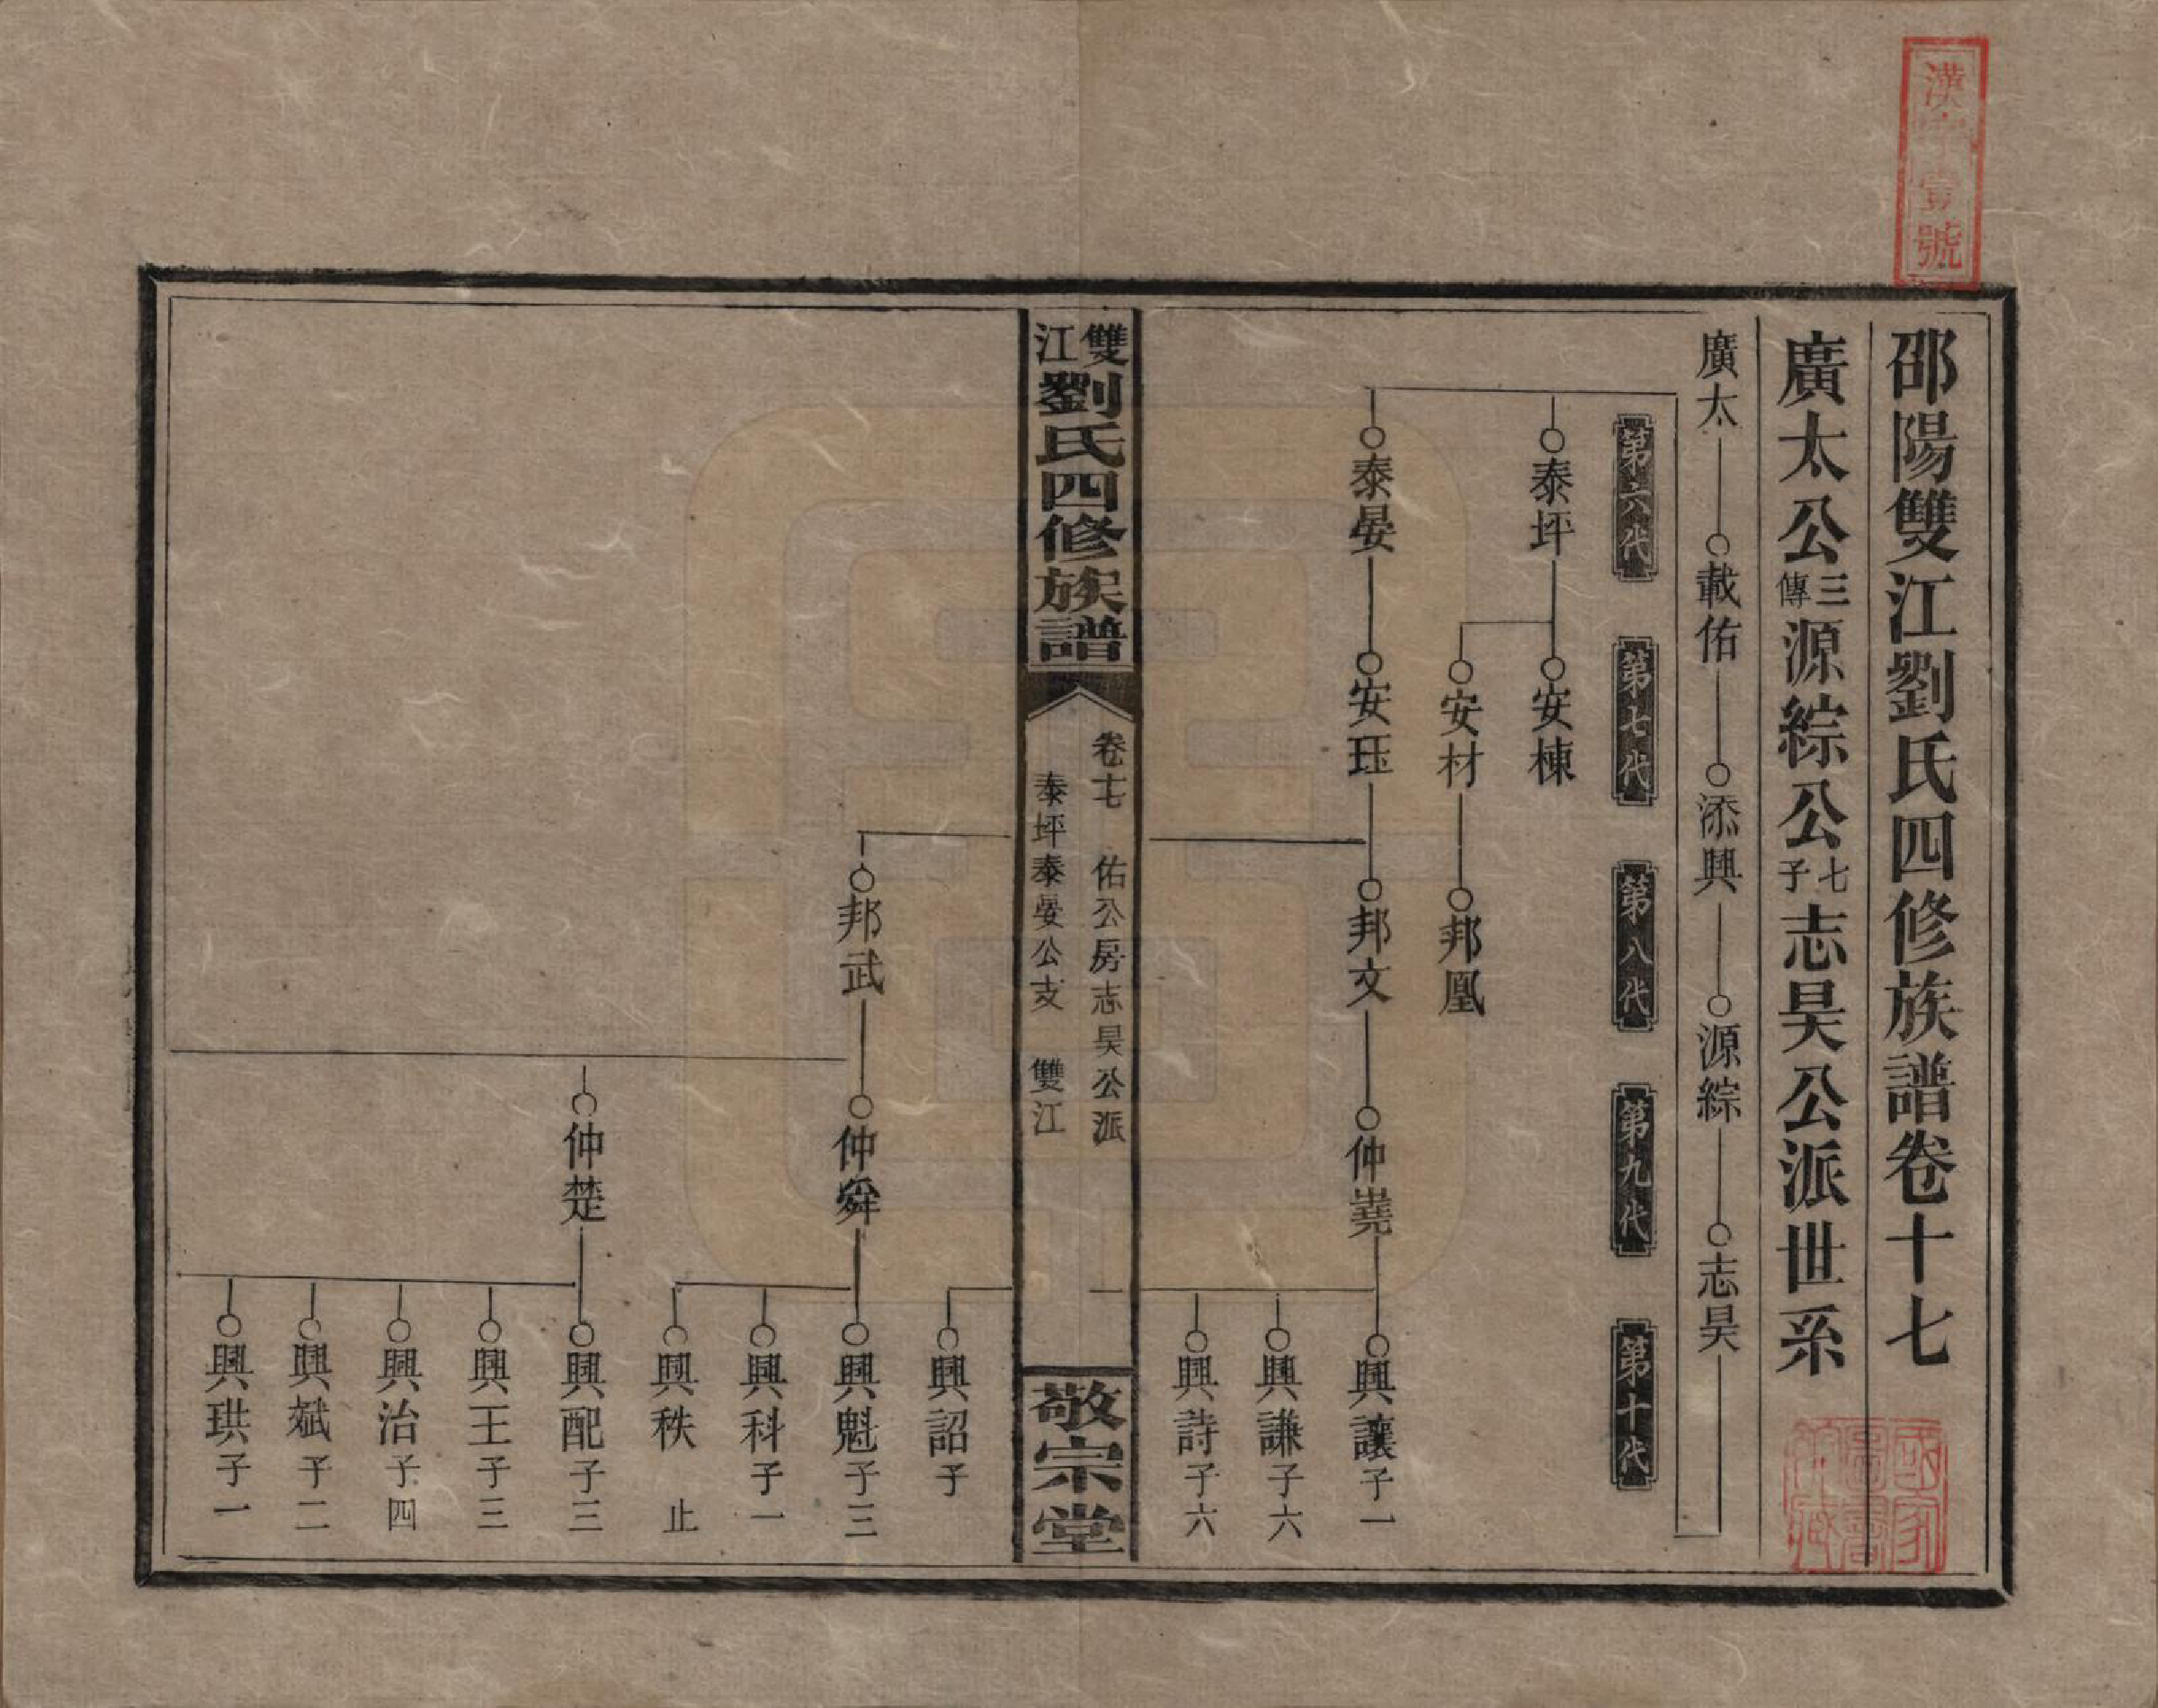 邵陽雙江劉氏四修族譜卷十七
廣太公三傳源綜公七子志昊公派世系
廣太 載佑 添興 源綜 志昊
第六代 第七代 第八代 第九代 第十代
泰坪 安棟
安材 邦凰
泰晏 安珏 邦文 仲堯 興讓子一
興謙子六
興詩子六
雙江劉氏四修族譜
卷十七 佑公房志昊公派
泰坪泰晏公支 雙江
敬宗堂
興詔子
邦武 仲舜 興魁子三
興科子一
興秩 止
仲楚 興配子三
興王子三
興治子四
興斌子二
興珙子一
號
國家圖書館藏